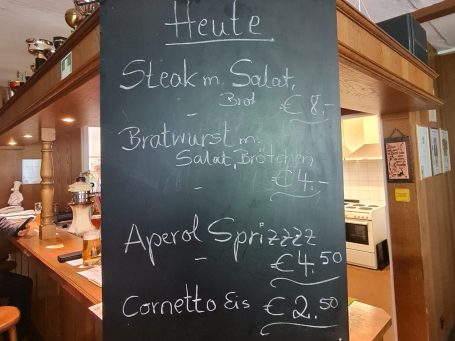 Heute
Steak m. Salat,
Brot € 8.-
Bratwurst m.
Salat, Brötchen
€ 4.-
Aperol Sprizzzz
€ 4.50
Cornetto Eis € 2.50